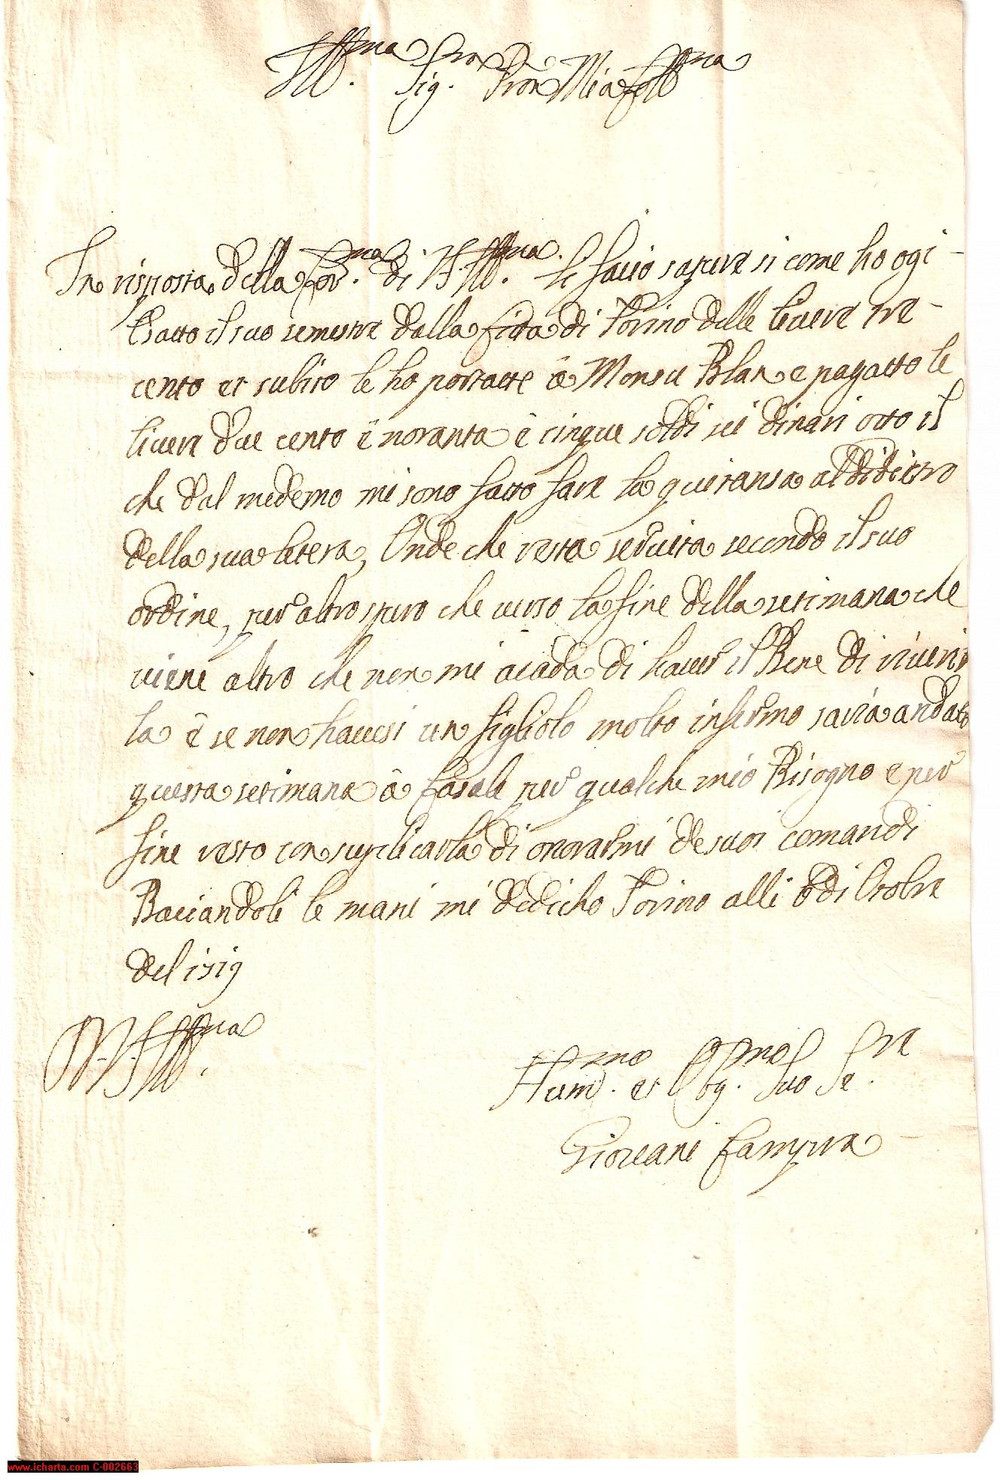 Ill.ma Sig.ra Pron Mia Coll.ma
In risposta della Cor.ma di V.S. Ill.ma le facio sapere si come ho ogi
Esatto il suo semestre dalla Cita di Torino delle livere tre
cento et subito le ho portatte â Monsu Blan e pagatto le
livere due cento ê noranta ê cinque soldi sei dinari otto il
che dal medemo mi sono fatto fare la quitansa al di dietro
della sua letera, Onde che resta servita secondo il suo
ordine, per altro spero che verso la fine della setimana che
viene altro che non mi acada di haver il Bene di riverir
la ê se non havesi un figliolo molto infermo saria andato
questa setimana â Casale per qualche mio Bisogno e per
fine resto con suplicarla di onorarmi de suoi comandi
Baciandoli le mani mi dedicho Torino alli 6 di Otobre
del 1519
D. V.S. Ill.ma
Hum.mo et Obg.mo Suo Se.re
Gioreani Campra
www.icharta.com C-002663